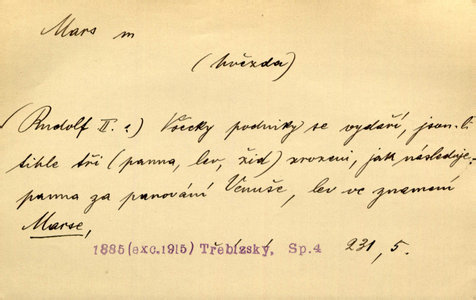 Mars m
(hvězda)
(Rudolf II. :) Všecky podniky se vydaří, jsou-li
tihle tři (panna, lev, žid) zrozeni, jak následuje:
panna za panování Venuše, lev ve znamení
Marse,
1885(exc.1915) Třebízský, Sp.4 231, 5.